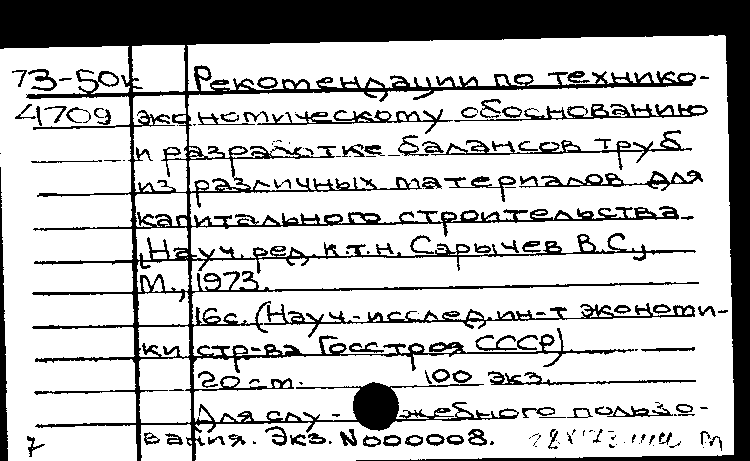 73-50к Рекомендации по технико-
4709 экономическому обоснованию
и разработке балансов труб
из различных материалов для
капитального строительства
[Науч. ред. к.т.н. Сарычев В.С.,
М., 1973.
16с. (Науч.-исслед. ин-т экономи-
ки стр-ва Госстроя СССР)
20 см. 100 экз.
Для слу-жебного пользо-
7 вания. Экз. N000008.